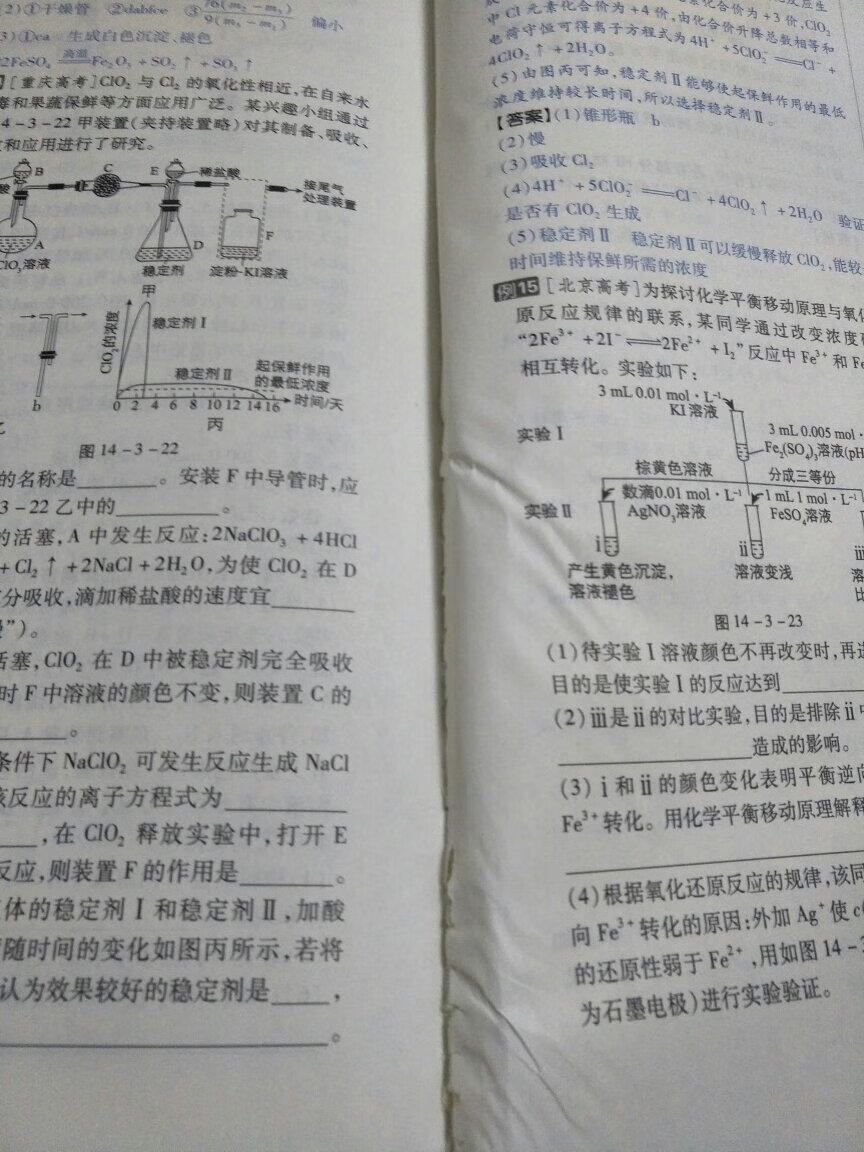 (2)①干燥管 ②dabfce ③76(m₂-m₃)/9(m₃-m₁) 偏小
3)①ca 生成白色沉淀、褪色
2FeSO₄ 高温 Fe₂O₃ + SO₂↑ + SO₃↑
[重庆高考]ClO₂ 与 Cl₂ 的氧化性相近,在自来水
毒和果蔬保鲜等方面应用广泛。某兴趣小组通过
4-3-22 甲装置(夹持装置略)对其制备、吸收、
和应用进行了研究。
B
C
E
稀盐酸
酸
接尾气
处理装置
A
D
F
ClO₃溶液
稳定剂
淀粉-KI溶液
甲
ClO₂的浓度
稳定剂Ⅰ
稳定剂Ⅱ
起保鲜作用
的最低浓度
0 2 4 6 8 10 12 14 16
时间/天
b
丙
图14-3-22
的名称是。安装 F 中导管时,应
3-22 乙中的。
的活塞,A 中发生反应:2NaClO₃ + 4HCl
+ Cl₂↑ + 2NaCl + 2H₂O,为使 ClO₂ 在 D
分吸收,滴加稀盐酸的速度宜
”)。
活塞,ClO₂ 在 D 中被稳定剂完全吸收
时 F 中溶液的颜色不变,则装置 C 的
。
条件下 NaClO₂ 可发生反应生成 NaCl
该反应的离子方程式为
,在 ClO₂ 释放实验中,打开 E
反应,则装置 F 的作用是。
体的稳定剂Ⅰ和稳定剂Ⅱ,加酸
随时间的变化如图丙所示,若将
认为效果较好的稳定剂是,
。
中 Cl 元素化合价为 +4 价,由化合价升降总数相等和
电荷守恒可得离子方程式为 4H⁺ + 5ClO₂⁻ ══ Cl⁻ +
4ClO₂↑ + 2H₂O。
(5)由图丙可知,稳定剂Ⅱ能够使起保鲜作用的最低
浓度维持较长时间,所以选择稳定剂Ⅱ。
【答案】(1)锥形瓶 b
(2)慢
(3)吸收 Cl₂
(4)4H⁺ + 5ClO₂⁻ ══ Cl⁻ + 4ClO₂↑ + 2H₂O 验证
是否有 ClO₂ 生成
(5)稳定剂Ⅱ 稳定剂Ⅱ可以缓慢释放 ClO₂,能较
时间维持保鲜所需的浓度
例15 [北京高考]为探讨化学平衡移动原理与氧化
原反应规律的联系,某同学通过改变浓度
“2Fe³⁺ + 2I⁻ ⇌ 2Fe²⁺ + I₂”反应中 Fe³⁺ 和 Fe
相互转化。实验如下:
3 mL 0.01 mol·L⁻¹
KI溶液
实验Ⅰ
3 mL 0.005 mol·
Fe₂(SO₄)₃溶液(pH
棕黄色溶液
分成三等份
实验Ⅱ
数滴0.01 mol·L⁻¹
AgNO₃溶液
1 mL 1 mol·L⁻¹
FeSO₄溶液
ⅰ
ⅱ
ⅲ
产生黄色沉淀,
溶液褪色
溶液变浅
溶
比
图14-3-23
(1)待实验Ⅰ溶液颜色不再改变时,再进
目的是使实验Ⅰ的反应达到
(2)ⅲ是ⅱ的对比实验,目的是排除ⅱ中
造成的影响。
(3)ⅰ和ⅱ的颜色变化表明平衡逆向
Fe³⁺转化。用化学平衡移动原理解释
(4)根据氧化还原反应的规律,该同
向 Fe³⁺ 转化的原因:外加 Ag⁺ 使 c(
的还原性弱于 Fe²⁺,用如图 14-3
为石墨电极)进行实验验证。